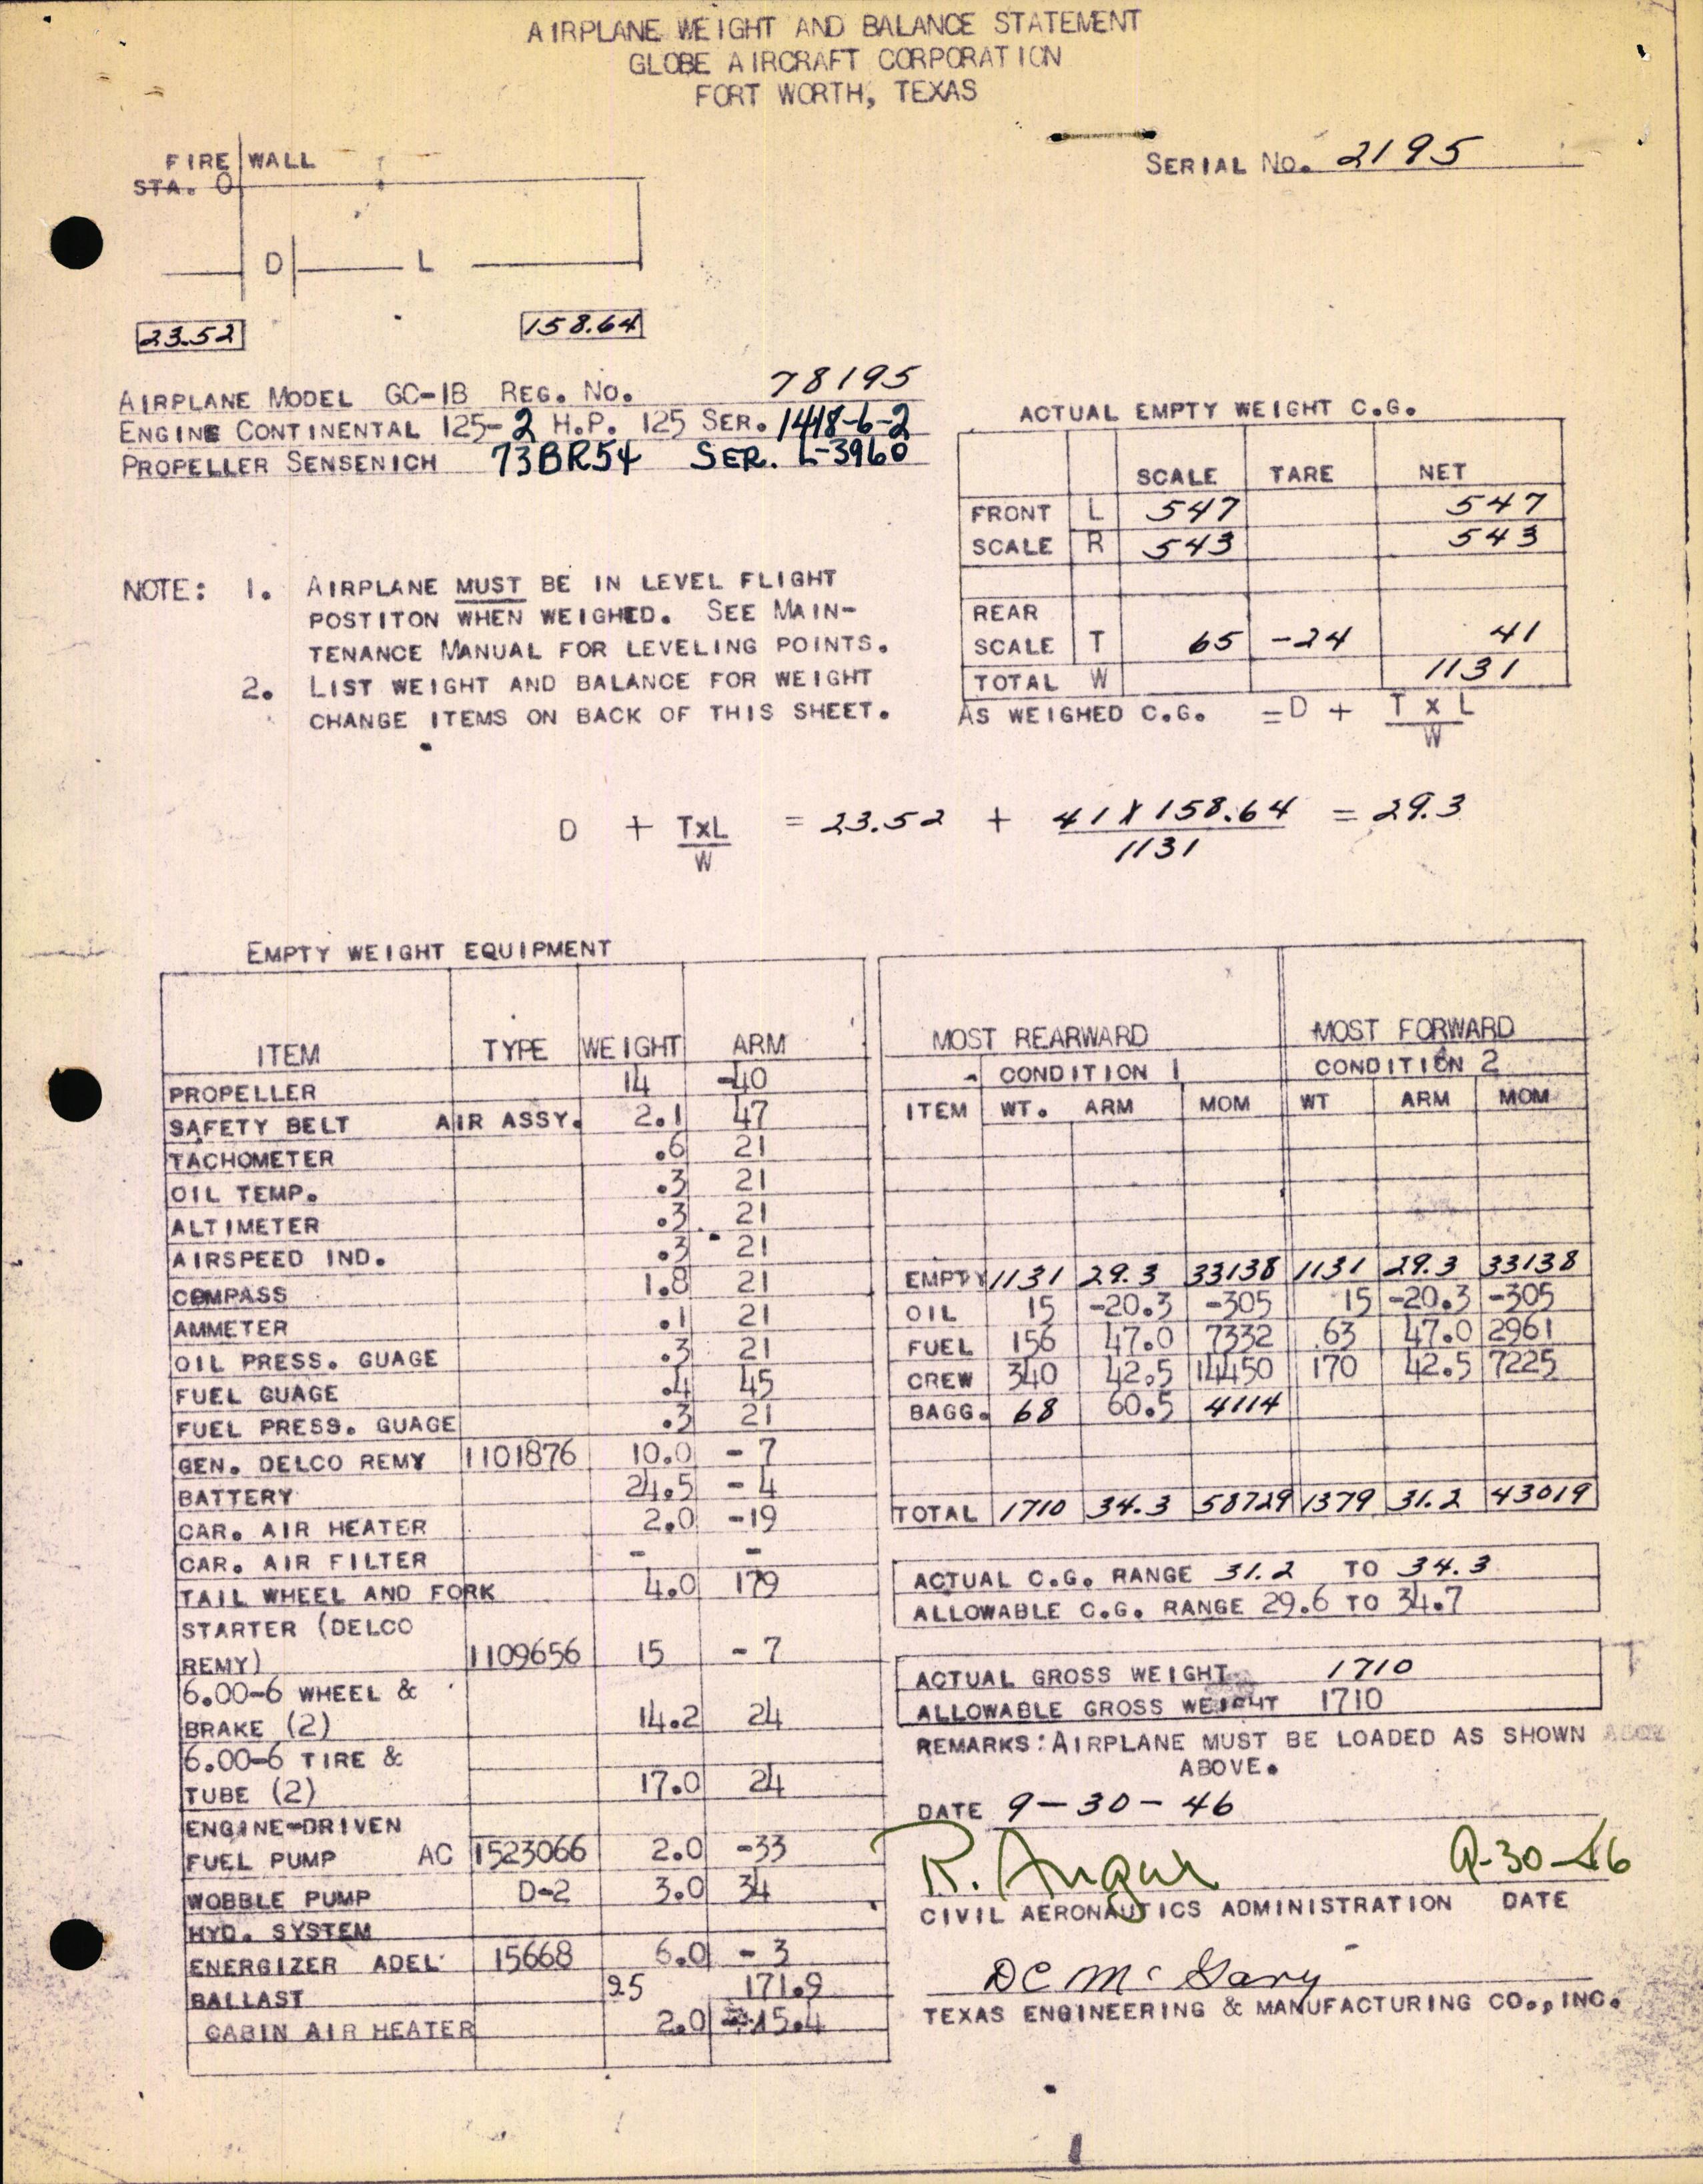 AIRPLANE WEIGHT AND BALANCE STATEMENT
GLOBE AIRCRAFT CORPORATION
FORT WORTH, TEXAS
FIRE WALL
STA. 0
SERIAL NO. 2195
D L
23.52 158.64
AIRPLANE MODEL GC-1B REG. NO. 78195
ENGINE CONTINENTAL 125-2 H.P. 125 SER. 1418-6-2
PROPELLER SENSENICH 73BR54 SER. L-3960
ACTUAL EMPTY WEIGHT C.G.
SCALE TARE NET
FRONT L 547 547
SCALE R 543 543
REAR
SCALE T 65 -24 41
TOTAL W 1131
AS WEIGHED C.G. = D + T x L
W
NOTE: 1. AIRPLANE MUST BE IN LEVEL FLIGHT
POSTITON WHEN WEIGHED. SEE MAIN-
TENANCE MANUAL FOR LEVELING POINTS.
2. LIST WEIGHT AND BALANCE FOR WEIGHT
CHANGE ITEMS ON BACK OF THIS SHEET.
D + TxL = 23.52 + 41 X 158.64 = 29.3
W 1131
EMPTY WEIGHT EQUIPMENT
ITEM TYPE WEIGHT ARM
PROPELLER 14 -40
SAFETY BELT AIR ASSY. 2.1 47
TACHOMETER .6 21
OIL TEMP. .3 21
ALTIMETER .3 21
AIRSPEED IND. .3 21
COMPASS 1.8 21
AMMETER .1 21
OIL PRESS. GUAGE .3 21
FUEL GUAGE .4 45
FUEL PRESS. GUAGE .3 21
GEN. DELCO REMY 1101876 10.0 - 7
BATTERY 24.5 - 4
CAR. AIR HEATER 2.0 -19
CAR. AIR FILTER - -
TAIL WHEEL AND FORK 4.0 179
STARTER (DELCO
REMY) 1109656 15 - 7
6.00-6 WHEEL &
BRAKE (2) 14.2 24
6.00-6 TIRE &
TUBE (2) 17.0 24
ENGINE-DRIVEN
FUEL PUMP AC 1523066 2.0 -33
WOBBLE PUMP D-2 3.0 34
HYD. SYSTEM
ENERGIZER ADEL 15668 6.0 - 3
BALLAST 25 171.9
CABIN AIR HEATER 2.0 15.4
MOST REARWARD MOST FORWARD
CONDITION 1 CONDITION 2
ITEM WT. ARM MOM WT ARM MOM
EMPTY 1131 29.3 33138 1131 29.3 33138
OIL 15 -20.3 -305 15 -20.3 -305
FUEL 156 47.0 7332 63 47.0 2961
CREW 340 42.5 14450 170 42.5 7225
BAGG. 68 60.5 4114
TOTAL 1710 34.3 58729 1379 31.2 43019
ACTUAL C.G. RANGE 31.2 TO 34.3
ALLOWABLE C.G. RANGE 29.6 TO 34.7
ACTUAL GROSS WEIGHT 1710
ALLOWABLE GROSS WEIGHT 1710
REMARKS: AIRPLANE MUST BE LOADED AS SHOWN
ABOVE.
DATE 9-30-46
R. Angur 9-30-46
CIVIL AERONAUTICS ADMINISTRATION DATE
DC McGary
TEXAS ENGINEERING & MANUFACTURING CO., INC.
1